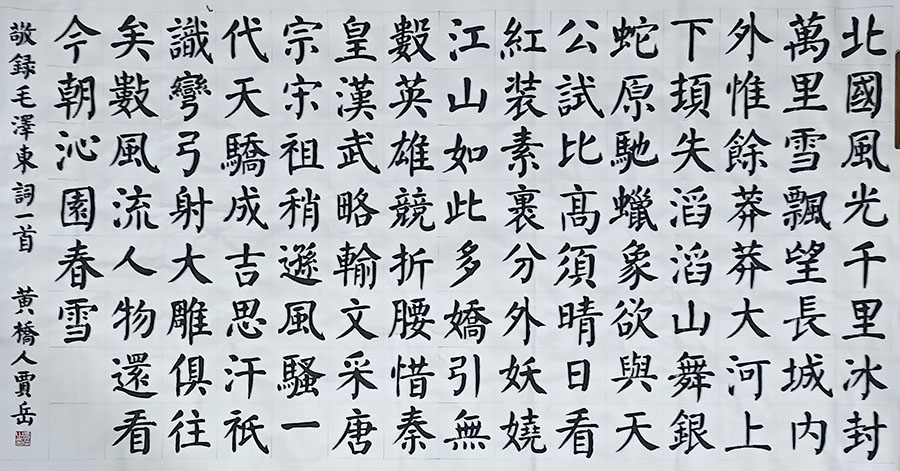 北國風光千里冰封
萬里雪飄望長城内
外惟餘莽莽大河上
下頓失滔滔山舞銀
蛇原馳蠟象欲與天
公試比高須晴日看
紅装素裹分外妖嬈
江山如此多嬌引無
數英雄競折腰惜秦
皇漢武略輸文采唐
宗宋祖稍遜風騷一
代天驕成吉思汗祇
識彎弓射大雕俱往
矣數風流人物還看
今朝沁園春雪
敬録毛澤東詞一首 黄橋人賈岳